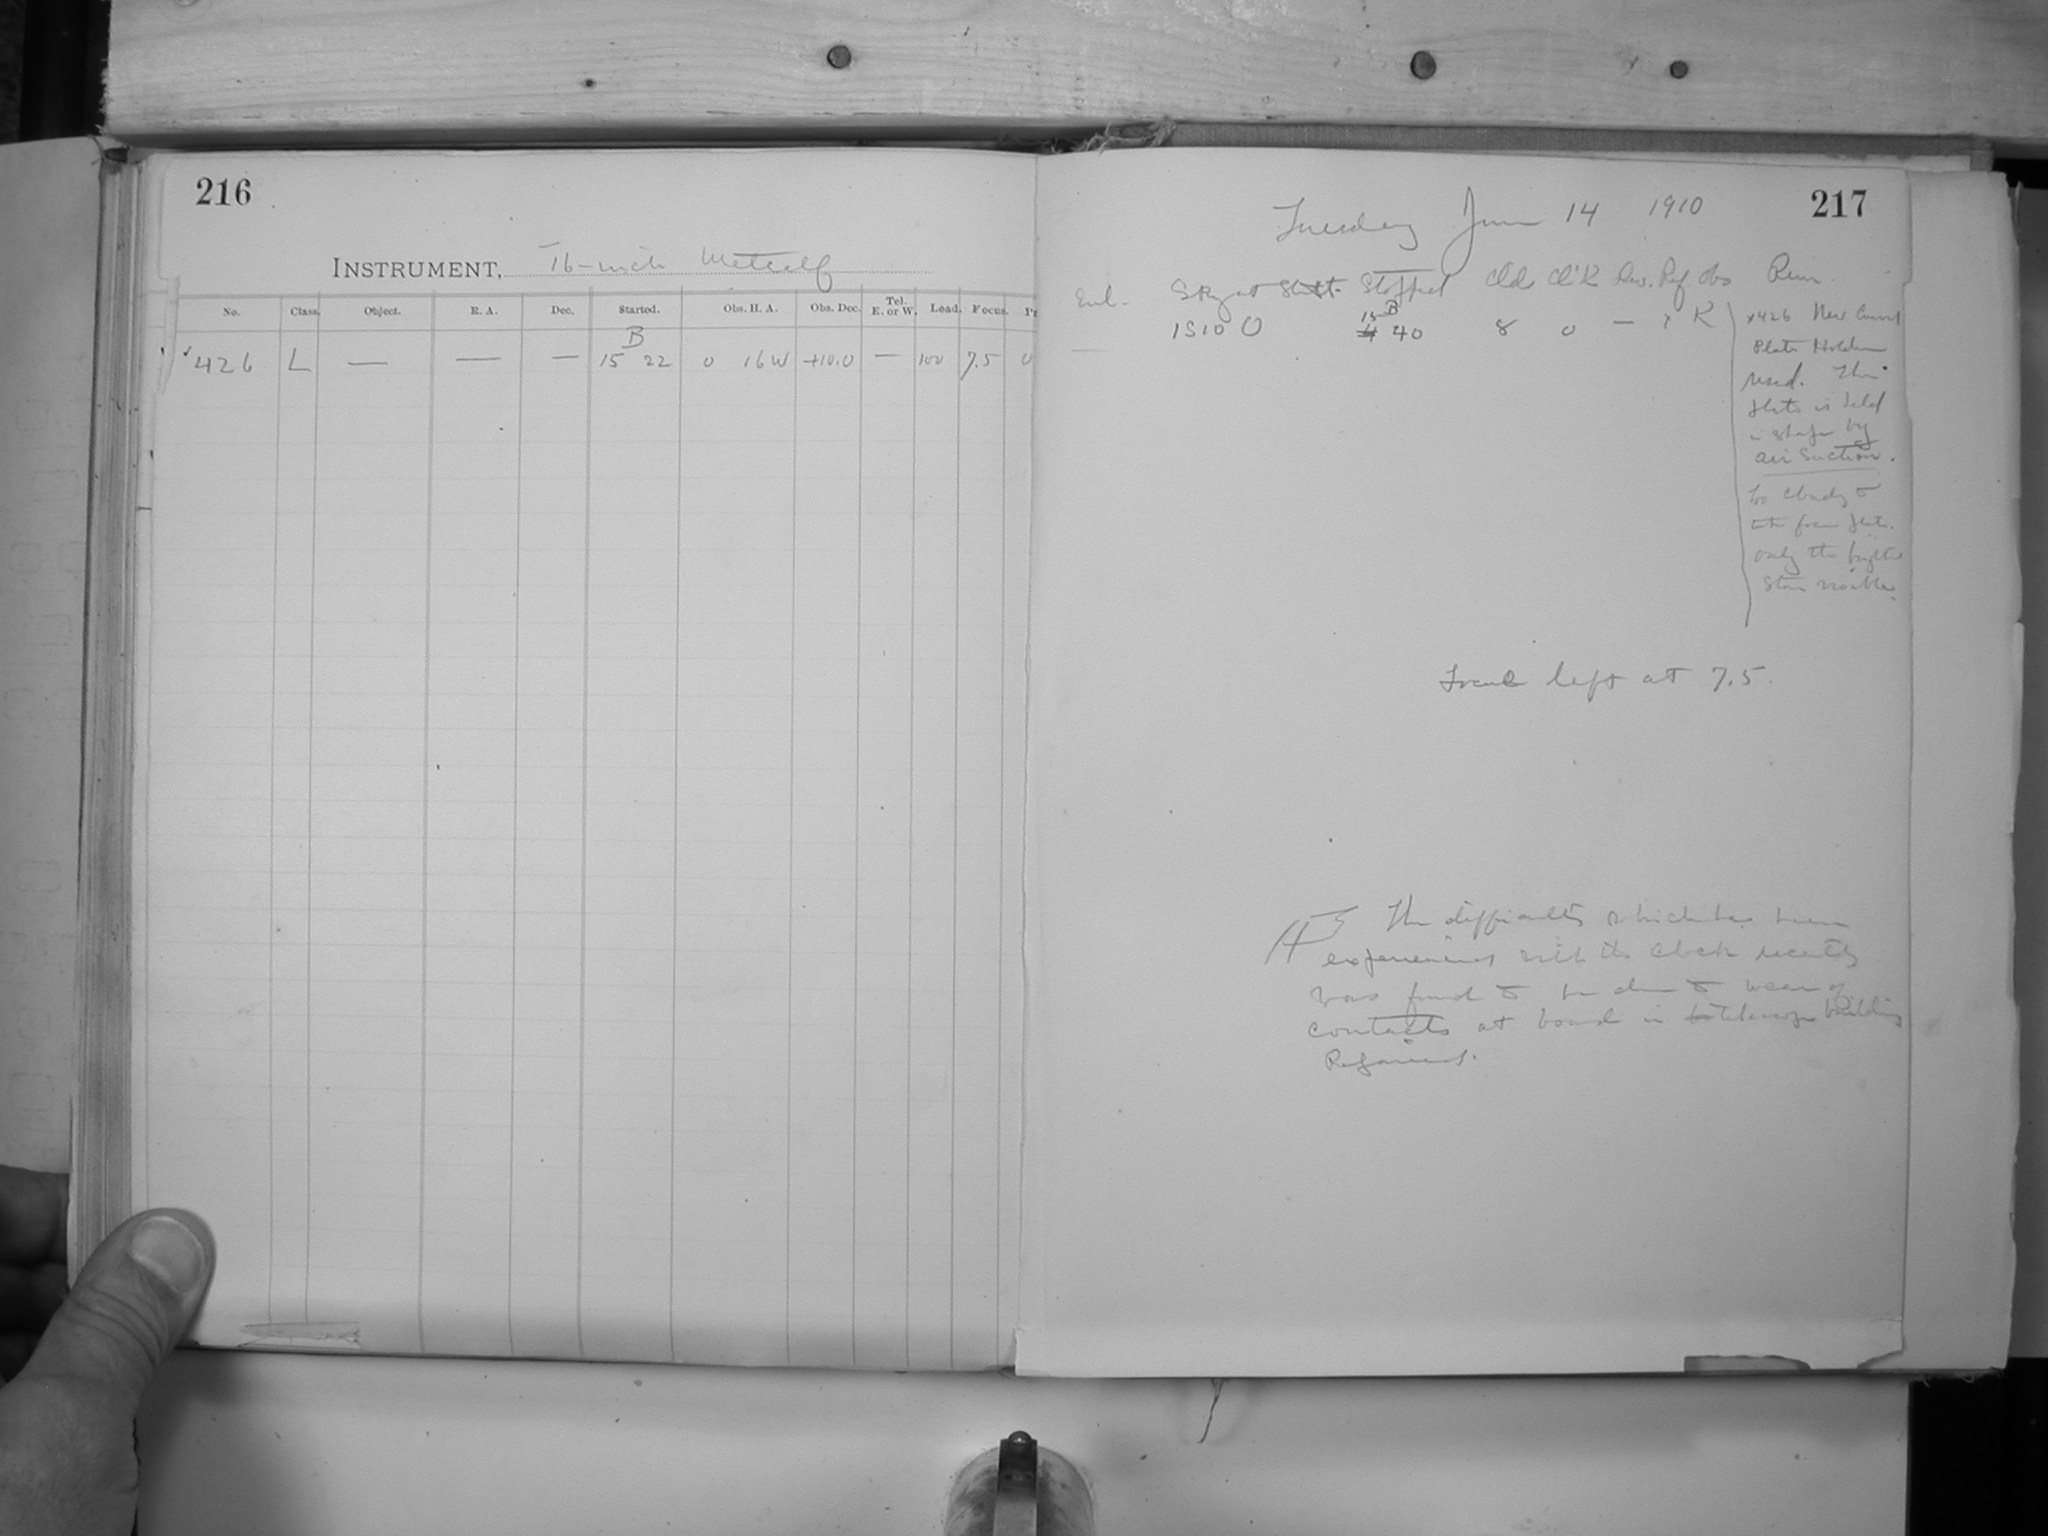 216
INSTRUMENT, 16-inch Metcalf
No. Class. Object. R. A. Dec. Started. Obs. H. A. Obs. Dec. Tel. E. or W. Load. Focus. Pr
B
426 L — — — 15 22 0 16 W +10.0 — 100 7.5 0
217
Tuesday June 14 1910
Sky at Start. Stopped Clds Cl'k Rev. Ref Obs Rem.
B
1510 0 15 40 8 0 — K
x426 New Curved
Plate Holder
used. The
plate is held
in shape by
air suction.
Too cloudy to
take focus plate.
only the brighter
stars visible.
Focus left at 7.5.
The difficulty which has been
experienced with the clock recently
was found to be due to wear of
contacts at board in telescope building
Repaired.